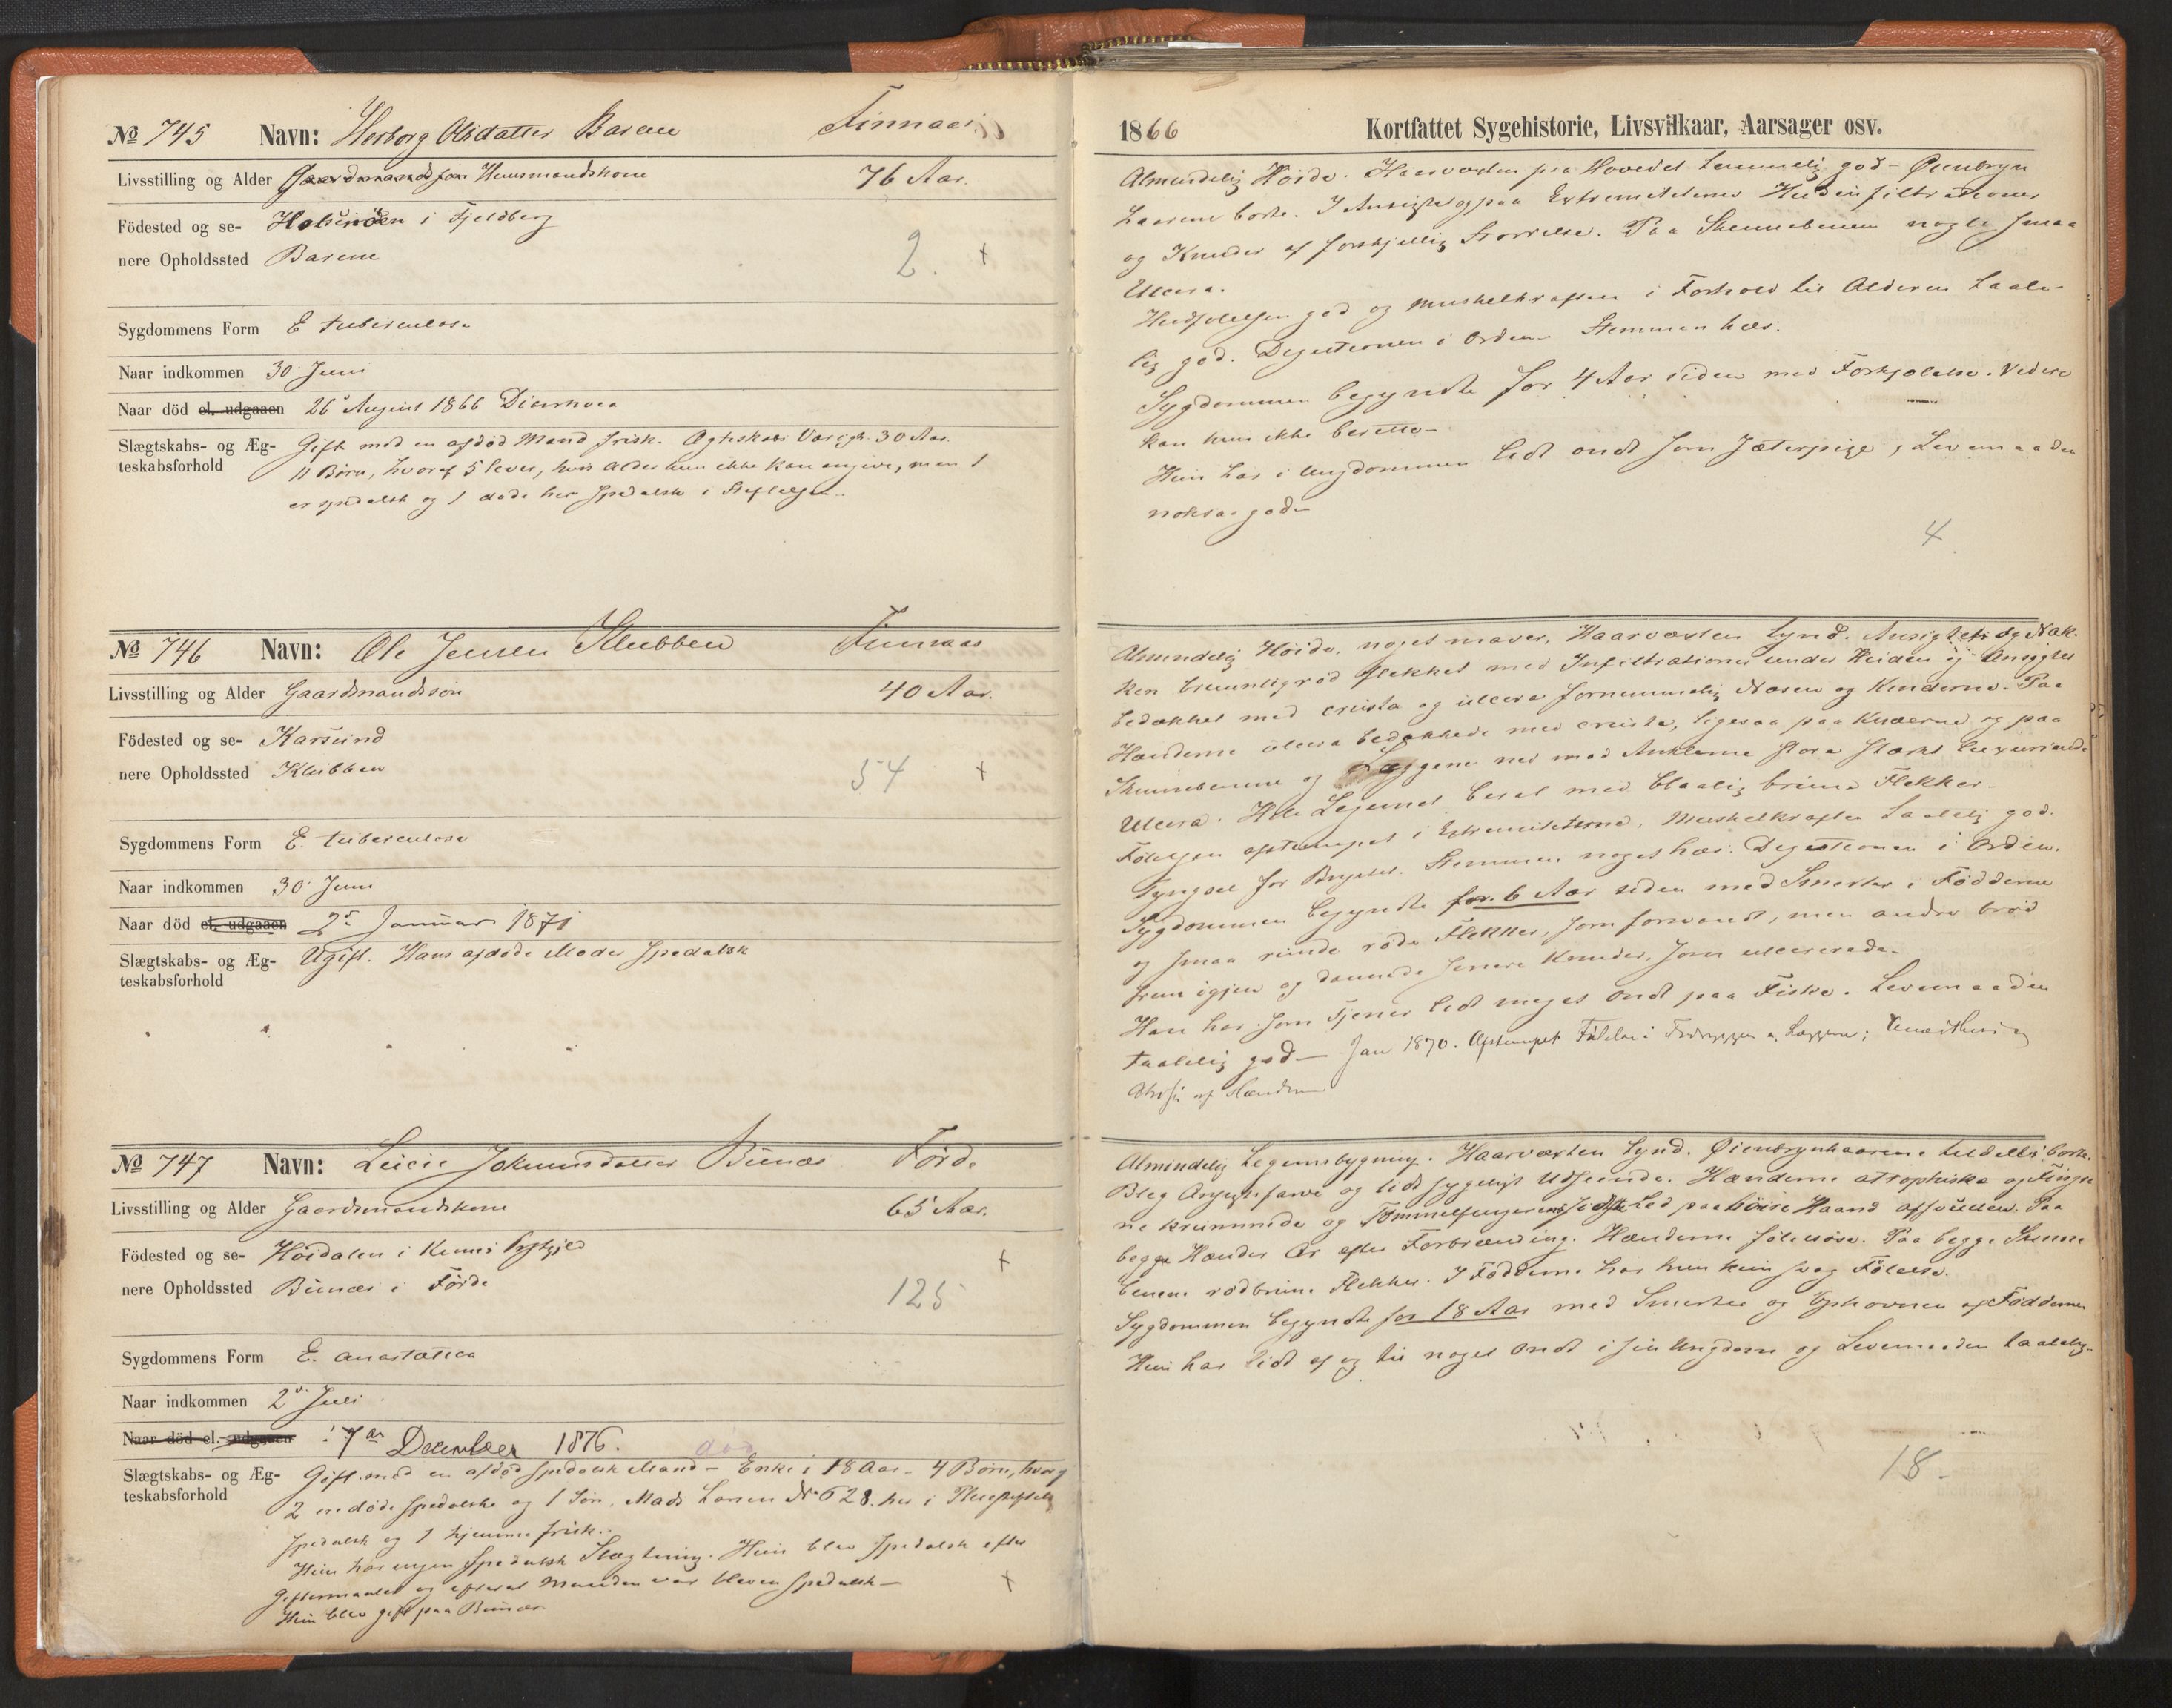 № 745 Navn: Herborg Olsdatter Barene Finnaas
Livsstilling og Alder Gaardmandsson Huusmandskone 76 Aar.
Fødested og se- Halsenöen i Fjeldberg
nere Opholdssted Barene 2. +
Sygdommens Form E tuberculosa
Naar indkommen 30 Juni
Naar död el. udgaaen 26 August 1866 Diarrhoea
Slægtskabs- og Æg- Gift med en afdød Mand frisk. Ægteskabs Varigh. 30 Aar.
teskabsforhold 11 Børn, hvoraf 5 lever, hvis Alder hun ikke kan angive, men 1
er spedalsk og 1 døde her spedalsk i Stiftelsen.
№ 746 Navn: Ole Jensen Klubben Finnaas
Livsstilling og Alder Gaardmandssön 40 Aar.
Fødested og se- Karsund
nere Opholdssted Klubben 54 +
Sygdommens Form E. tuberculosa
Naar indkommen 30 Juni
Naar död el. udgaaen 2 Januar 1871
Slægtskabs- og Æg- Ugift. Hans afdöde Moder spedalsk
teskabsforhold
№ 747 Navn: Lucie Johannsdatter Bünæs Förde
Livsstilling og Alder Gaardmandskone 65 Aar.
Fødested og se- Höidalen i Kinns Prstgjeld +
nere Opholdssted Bünæs i Förde 125
Sygdommens Form E. anæsthetica
Naar indkommen 2 Juli
Naar död el. udgaaen 17 December 1876. död
Slægtskabs- og Æg- Gift med en afdöd spedalsk Mand – Enke i 18 Aar – 4 Börn, hvoraf
teskabsforhold 2 ere döde spedalske og 1 Sön, Mads Larsen № 628. her i Pleiestiftelsen
spedalsk og 1 hjemme frisk.
Hun har ingen spedalsk Slægtning. Hun blev spedalsk efter
Giftermaalet og efterat Manden var bleven spedalsk – +
Hun blev gift paa Bünæs
1866 Kortfattet Sygehistorie, Livsvilkaar, Aarsager osv.
Almindelig Höide. Haarvæxten paa Hovedet temmelig god – Öienbryn
haarene borte. I Ansigtet og paa Extremiteterne Hudinfiltrationer
og Knuder af forskjellig Störrelse. Paa Skinnebenene nogle smaa
Ulcera.
Hudfölelsen god og Muskelkraften i Forhold til Alderen taale-
lig god. Digestionen i Orden. Stemmen hæs.
Sygdommen begyndte for 4 Aar siden med Forkjölelse. Videre
kan hun ikke berette –
Hun har i Ungdommen lidt ondt som Jæterpige, Levemaaden
noksaa god –
4
Almindelig Höide, noget mager, Haarvæxten tynd. Ansigtet og Nak-
ken bruunligröd flekket med Infiltrationer under Huden og Ansigtet
bedækket med crusta og ulcera fornemmelig Næsen og Kinderne. Paa
Hænderne ulcera bedækkede med crusta, ligesaa paa Knæerne og paa
Skinnebenene og Læggene ned mod Anklerne store stærkt luxurirende
Ulcera. Hele Legemet besat med blaalig brune Flekker –
Fölelsen afstumpet i Extremiteterne, Muskelkraften taalelig god.
Tyngsel for Brystet. Stemmen noget hæs. Digestionen i Orden.
Sygdommen begyndte for 6 Aar siden med Smerter i Födderne
og smaa runde röde Flekker, som forsvandt, men andre bröd
frem igjen og dannede senere Knuder, som ulcererede –
Han har som Tjener lidt meget ondt paa Fiske. Levemaaden
taalelig god – Jan 1870. Afstumpet Fölelse i Fodryggen o. Læggene;
Atrofi af Hænderne
Almindelig Legemsbygning. Haarvæxten tynd. Öienbrynhaarene tildells borte.
Bleg Ansigtsfarve og lidt sygeligt Udseende. Hænderne atrophiske og Fingre
ne krummede og Tommelfingerens Led paa höire Haand affulden. Paa
begge Hænder Ar efter Forbrænding. Hænderne fölelöse. Paa begge Skinne
benene rödbrune Flekker. I Födderne har hun kun svag Fölelse.
Sygdommen begyndte for 18 Aar med Smerter og Ophovnen af Födderne
Hun har lidt af og til noget ondt i sin Ungdom og Levemaaden taalelig –
18 –